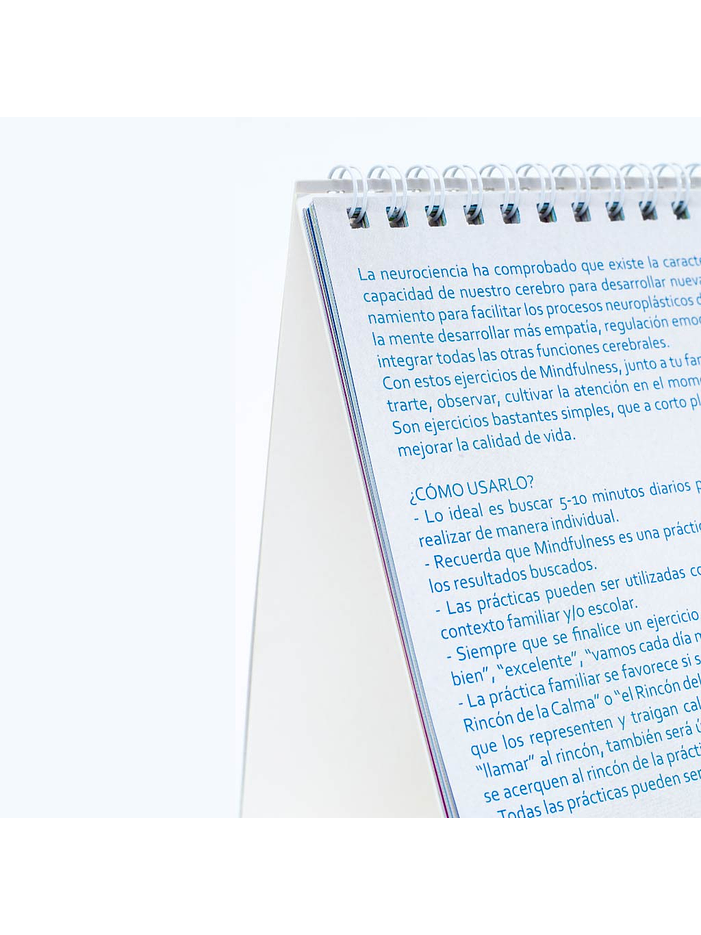 La neurociencia ha comprobado que existe la caracte
capacidad de nuestro cerebro para desarrollar nueva
namiento para facilitar los procesos neuroplásticos d
la mente desarrollar más empatia, regulación emoc
integrar todas las otras funciones cerebrales.
Con estos ejercicios de Mindfulness, junto a tu fam
trarte, observar, cultivar la atención en el mom
Son ejercicios bastantes simples, que a corto pl
mejorar la calidad de vida.
¿CÓMO USARLO?
- Lo ideal es buscar 5-10 minutos diarios p
realizar de manera individual.
- Recuerda que Mindfulness es una práctic
los resultados buscados.
- Las prácticas pueden ser utilizadas co
contexto familiar y/o escolar.
- Siempre que se finalice un ejercicio
bien”, “excelente”, “vamos cada día m
- La práctica familiar se favorece si s
Rincón de la Calma” o “el Rincón del
que los representen y traigan cal
“llamar” al rincón, también será ú
se acerquen al rincón de la prácti
- Todas las prácticas pueden ser